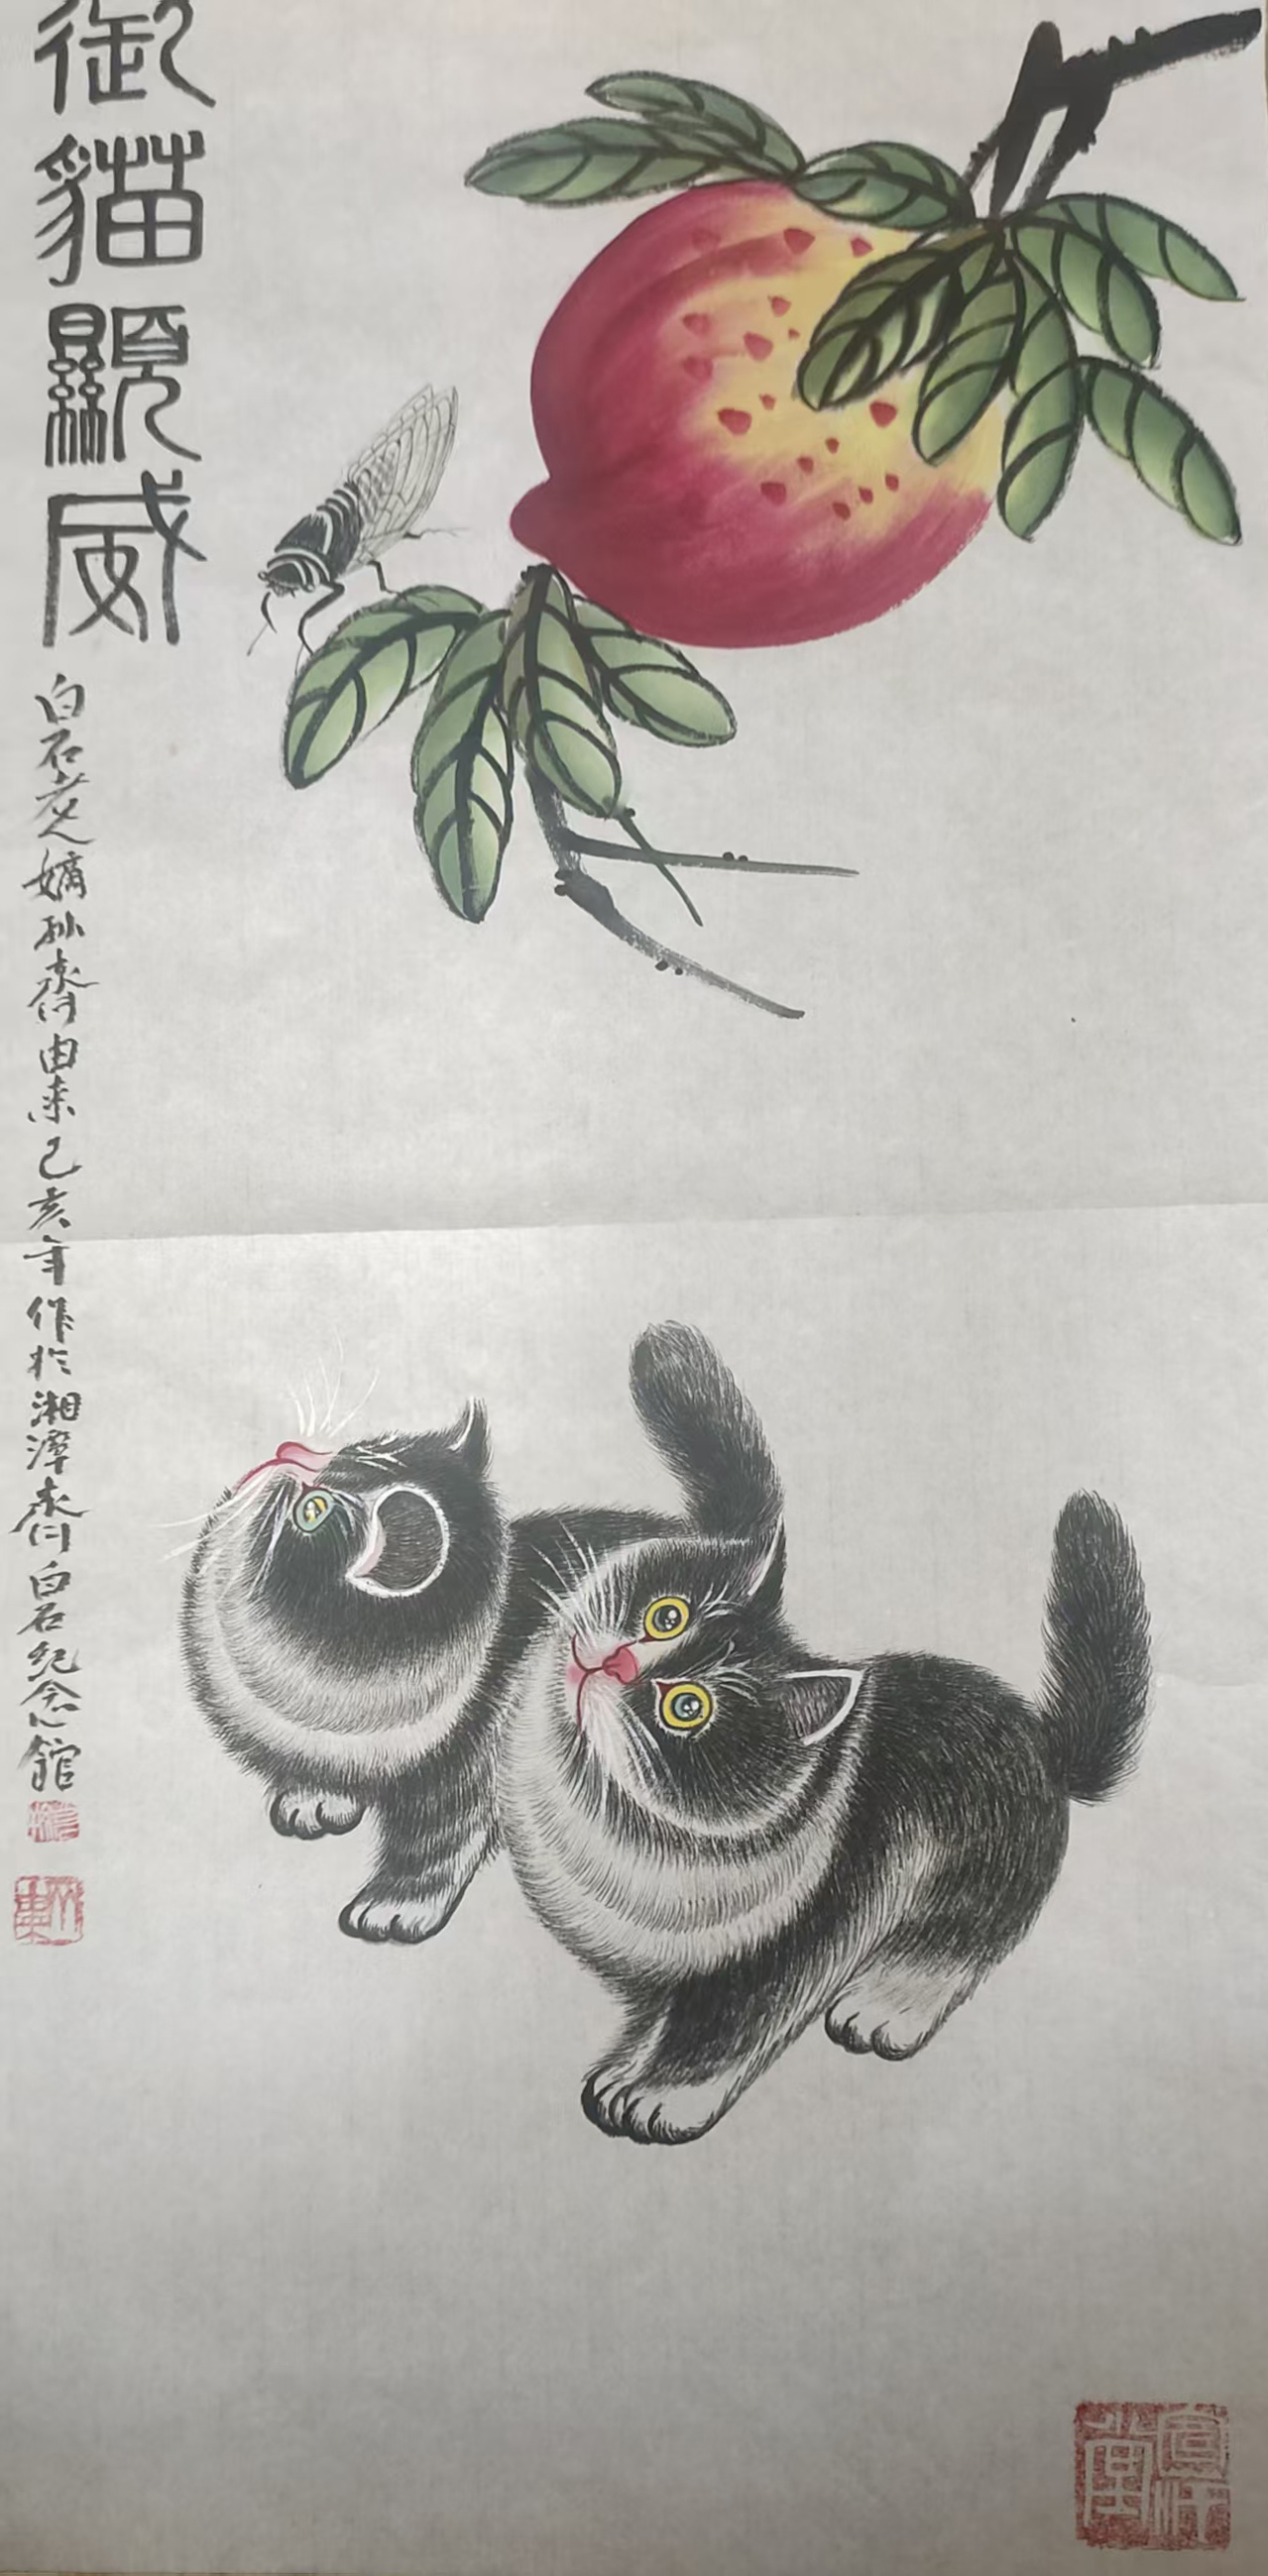 御貓顯威
白石老人嫡孙齊由来己亥年作於湘潭齊白石纪念舘